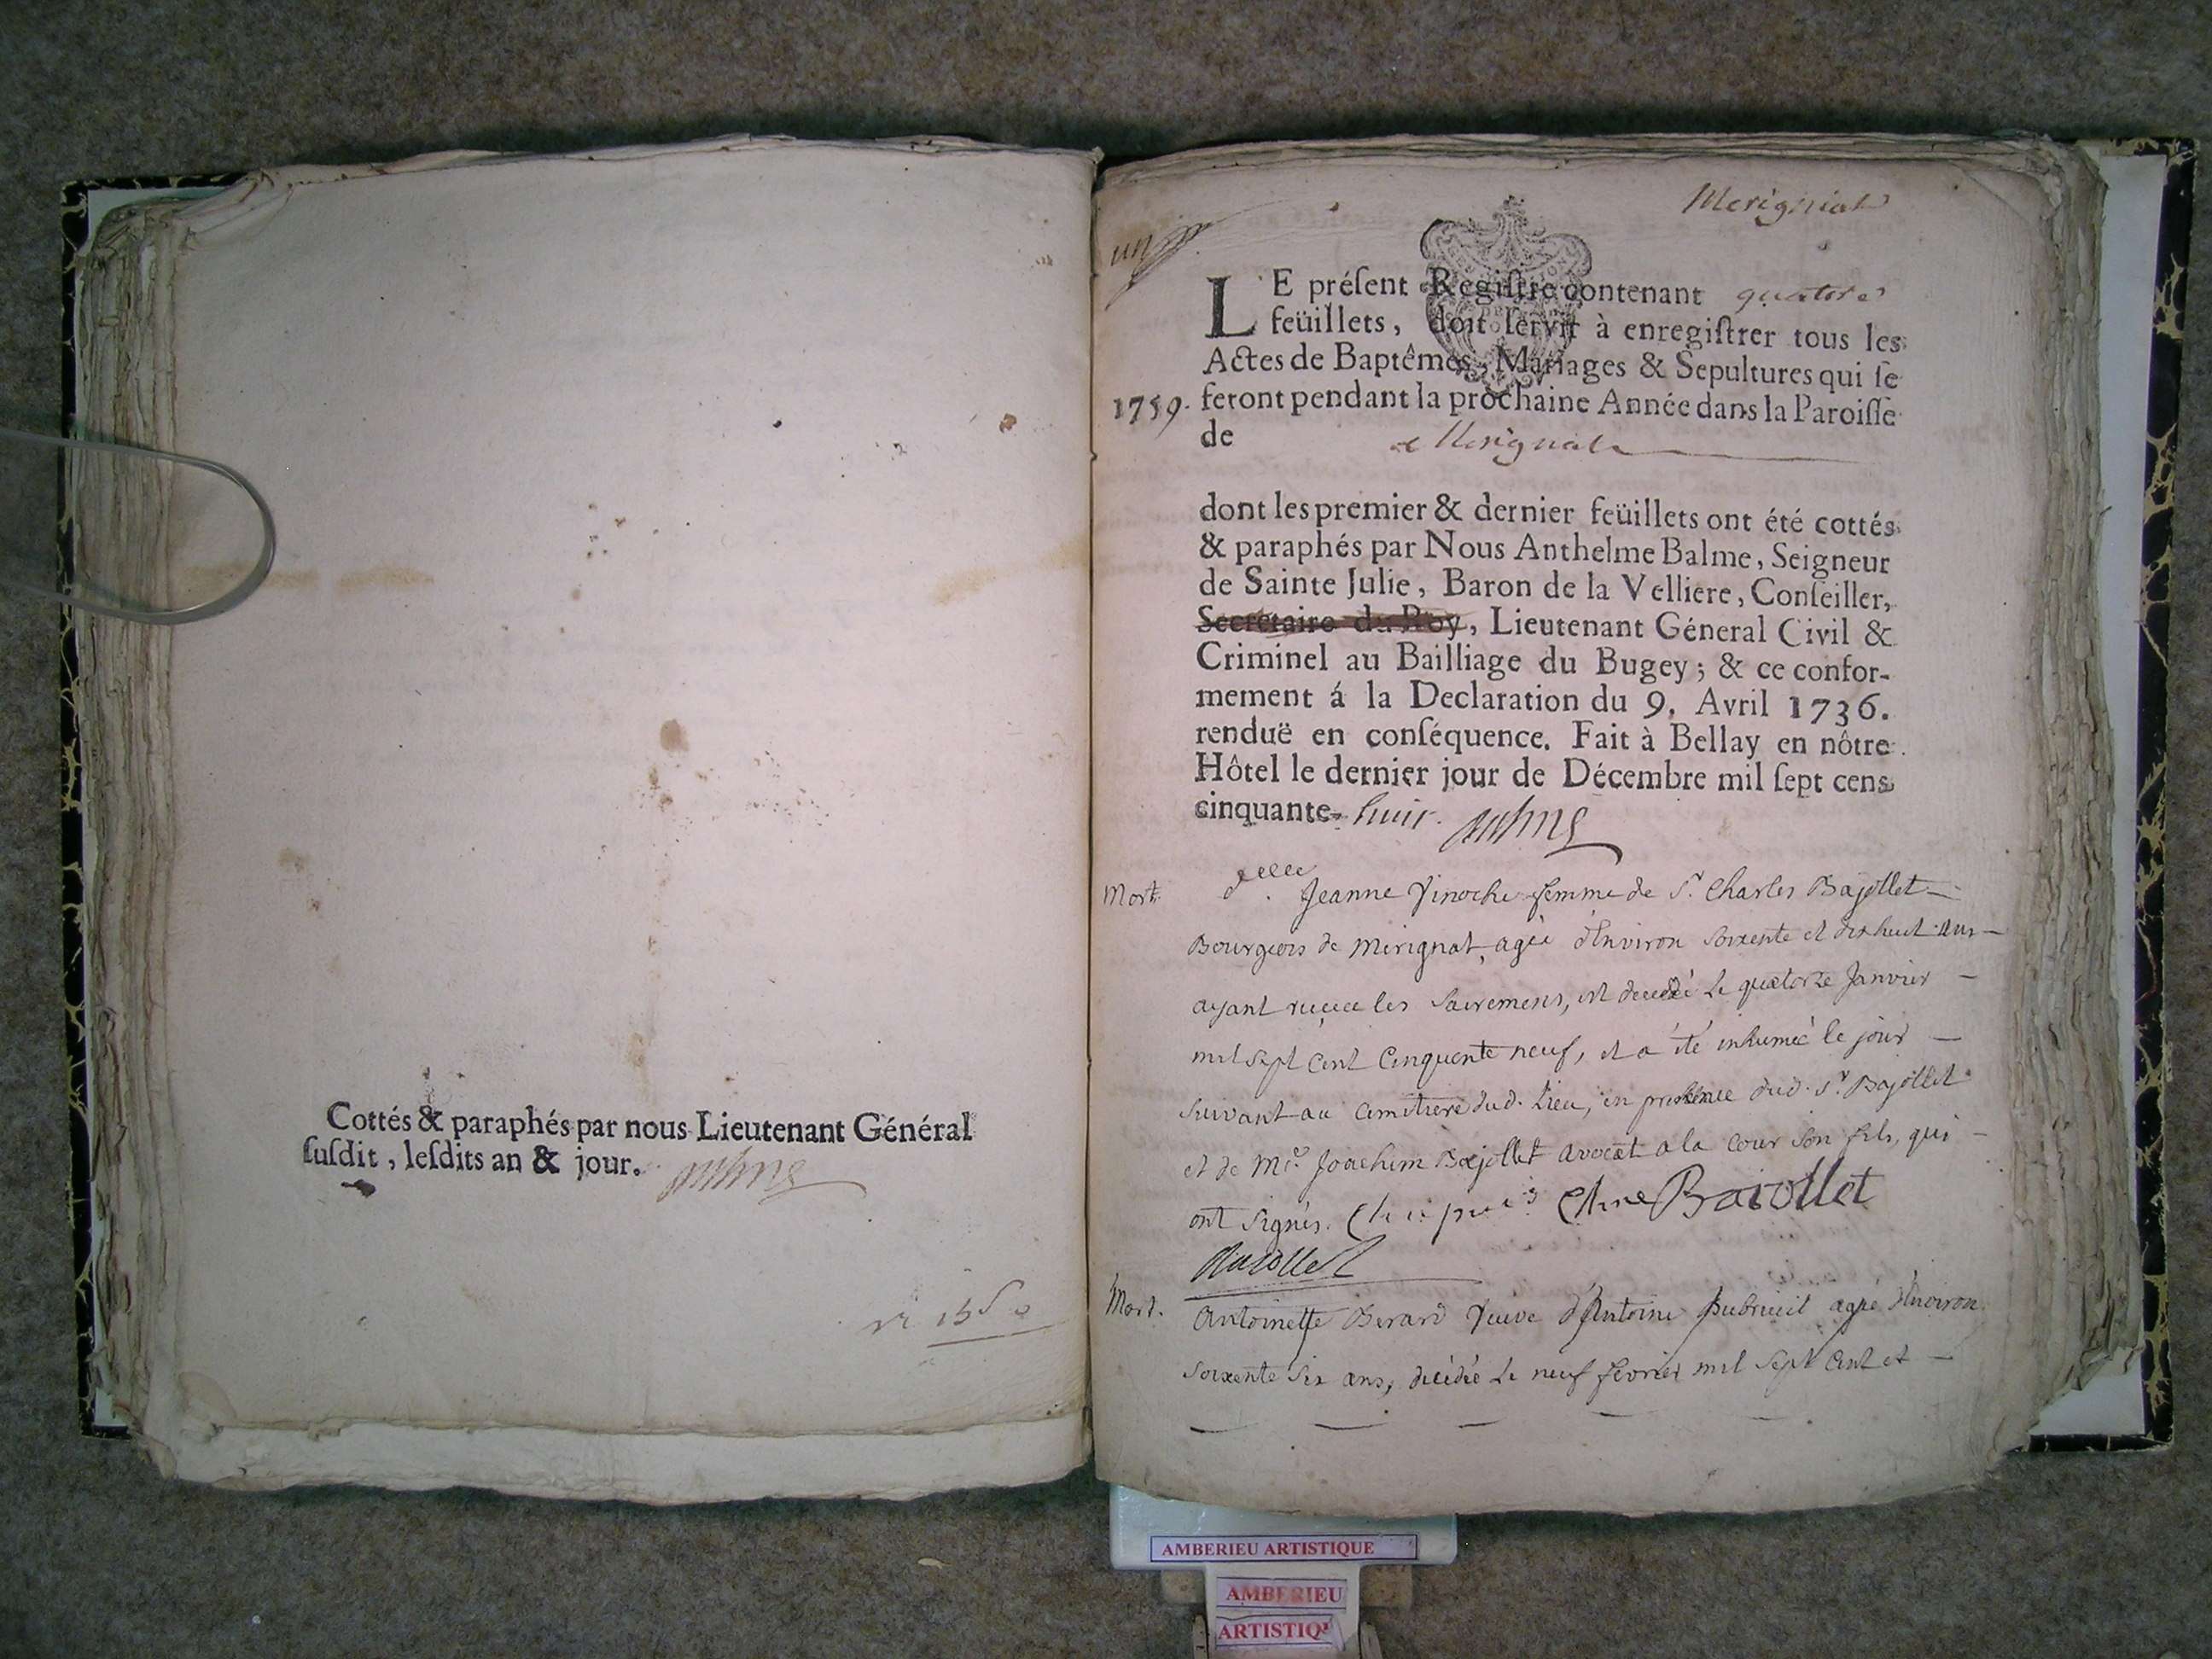 Cottés & paraphés par nous Lieutenant Général
ſuſdit, leſdits an & jour.
un
Merignat
LE préſent Regiſtre contenant quatorze
feüillets, doit ſervir à enregiſtrer tous les
Actes de Baptêmes, Mariages & Sepultures qui ſe
1759. feront pendant la prochaine Année dans la Paroiſſe
de Merignat
dont les premier & dernier feüillets ont été cottés
& paraphés par Nous Anthelme Balme, Seigneur
de Sainte Julie, Baron de la Velliere, Conſeiller,
Secretaire du Roy, Lieutenant Géneral Civil &
Criminel au Bailliage du Bugey; & ce confor-
mement á la Declaration du 9. Avril 1736.
renduë en conſéquence. Fait à Bellay en nôtre
Hôtel le dernier jour de Décembre mil ſept cens
cinquante-huit.
Mort. Jeanne Vinoche femme de Sr. Charles Bajollet
Bourgeois de Merignat, agée d'Environ soixente et dix huit ans
ayant reçue les Sacremens, est decedée le quatorze Janvier
mil sept cent Cinquente neuf, et a été inhumée le jour
Suivant au Cimitiere dud. Lieu, en presence dud. Sr. Bajollet
et de Me. Joachim Bajollet avocat a la cour son fils, qui
ont signés. Baiollet
Baiollet
Mort. Antoinette Berard veuve d'Antoine Dubrueil agée d'Environ
soixente six ans, décédée le neuf fevrier mil sept cent et
AMBERIEU ARTISTIQUE
AMBERIEU
ARTISTIQ